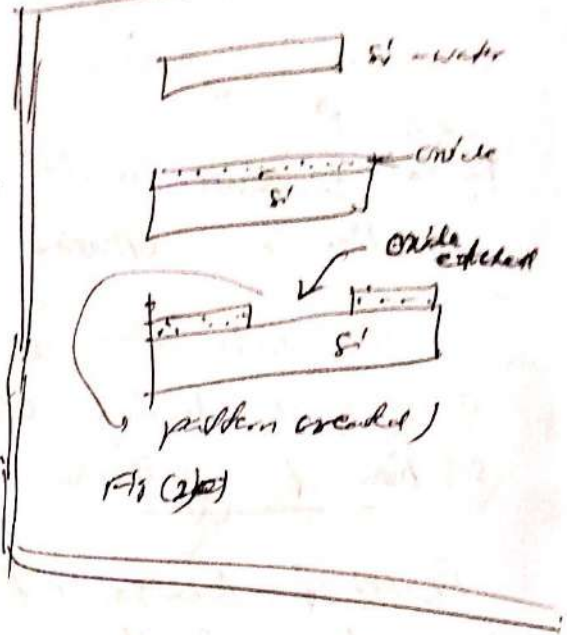 Si - wafer
Oxide
Si
Oxide
etched
Si
pattern created)
Fig (2)